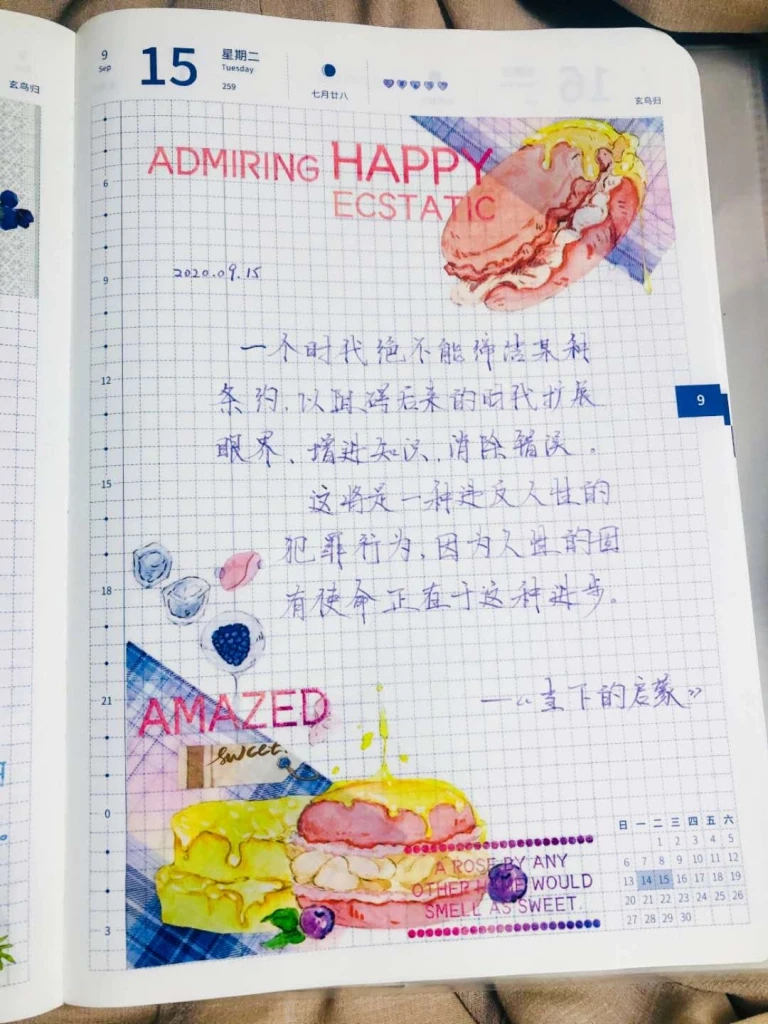 玄鸟归
9
Sep
15
星期二
Tuesday
259
七月廿八
玄鸟归
ADMIRING HAPPY
ECSTATIC
2020.09.15
一个时代绝不能缔结某种
条约，以阻碍后来的时代扩展
眼界、增进知识、消除错误。
这将是一种违反人性的
犯罪行为，因为人性的固
有使命正在于这种进步。
——《当下的启蒙》
AMAZED
sweet.
A ROSE BY ANY
OTHER NAME WOULD
SMELL AS SWEET.
6
9
12
15
18
21
0
3
9
日 一 二 三 四 五 六
1 2 3 4 5
6 7 8 9 10 11 12
13 14 15 16 17 18 19
20 21 22 23 24 25 26
27 28 29 30